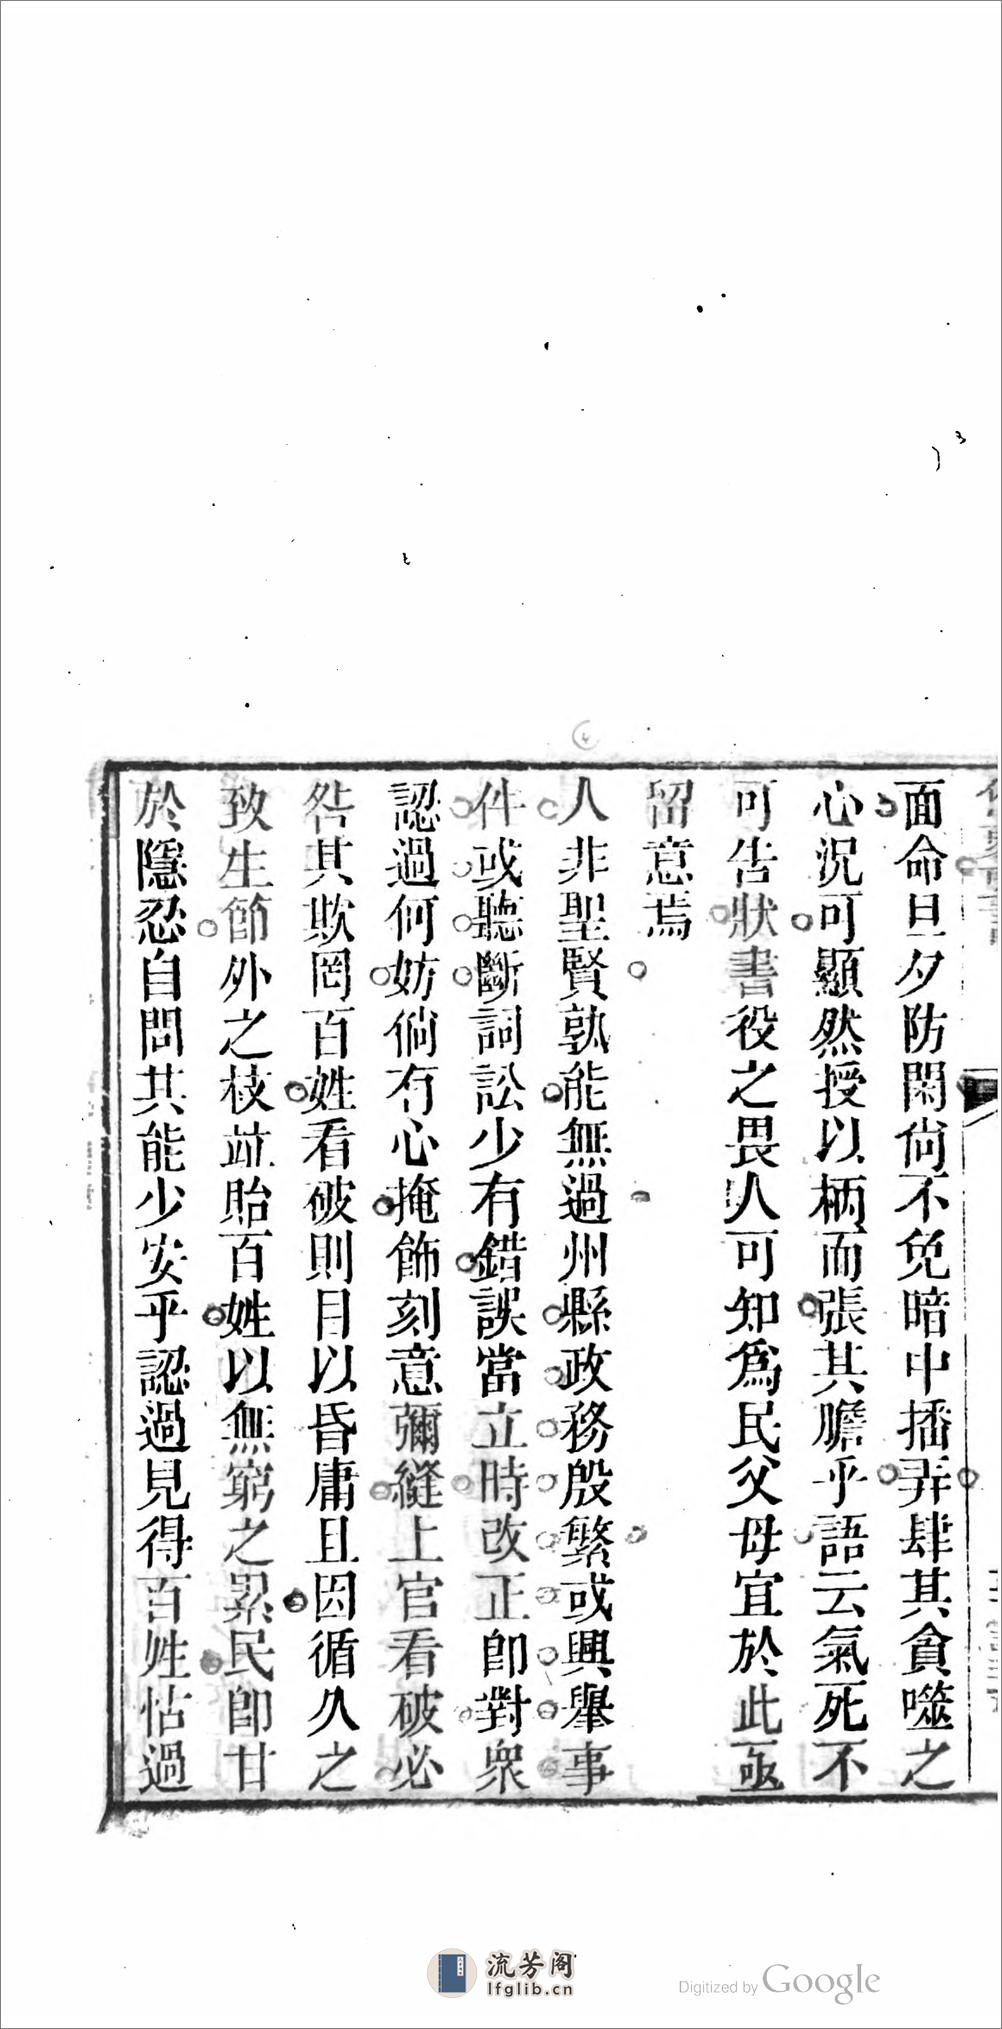 面命旦夕防閑尙不免暗中播弄肆其貪噬之
心況可顯然授以柄而張其膽乎語云氣死不
可告狀書役之畏人可知爲民父母宜於此亟
留意焉
人非聖賢孰能無過州縣政務殷繁或興舉事
件或聽斷詞訟少有錯誤當立時改正卽對衆
認過何妨倘有心掩飾刻意彌縫上官看破必
咎其欺罔百姓看破則目以昏庸且因循久之
致生節外之枝竝貽百姓以無窮之累民卽甘
於隱忍自問其能少安乎認過見得百姓怗過
流芳阁
lfglib.cn
Digitized by Google